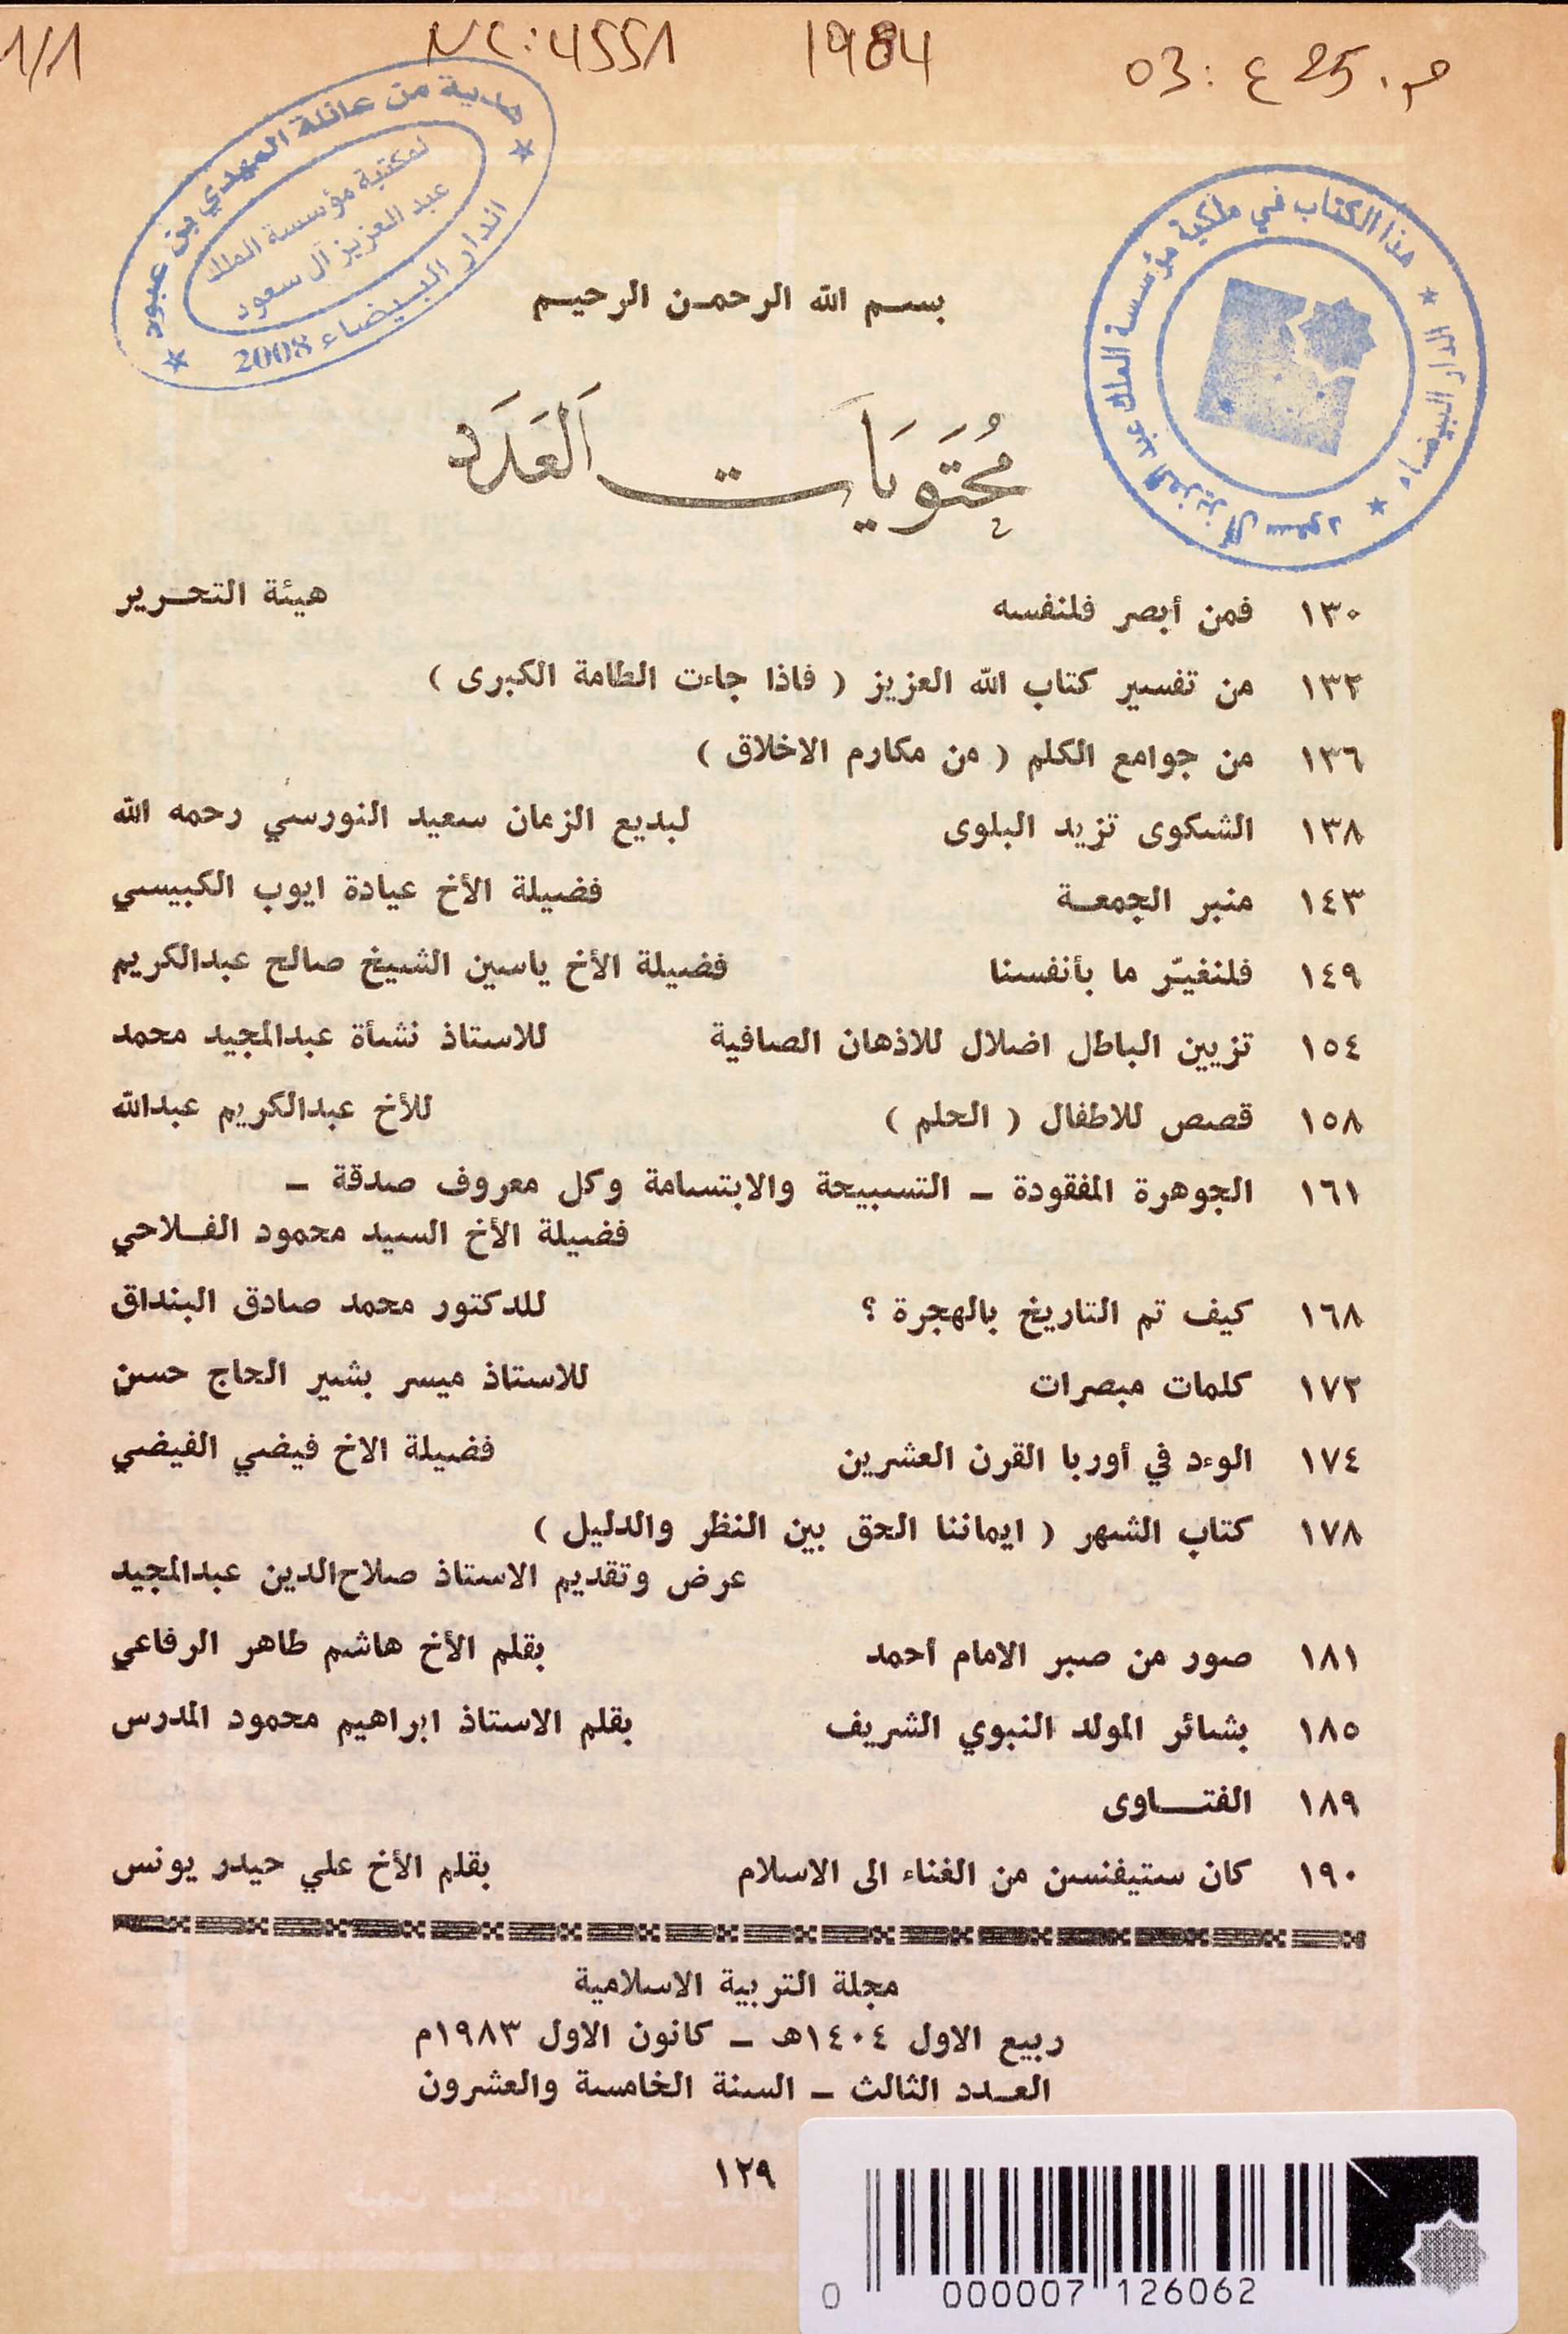 1/1
NC:4551
1984
03: ع 25.م
هدية من عائلة المهدي بن عبود
لمكتبة مؤسسة الملك
عبد العزيز آل سعود
الدار البيضاء 2008
هذا الكتاب في ملكية مؤسسة الملك عبد العزيز آل سعود
الدار البيضاء
بسم الله الرحمن الرحيم
مُحتَوَيَات اَلعَدَد
١٣٠ فمن أبصر فلنفسه هيئة التحرير
١٣٢ من تفسير كتاب الله العزيز ( فاذا جاءت الطامة الكبرى )
١٣٦ من جوامع الكلم ( من مكارم الاخلاق )
١٣٨ الشكوى تزيد البلوى لبديع الزمان سعيد النورسي رحمه الله
١٤٣ منبر الجمعة فضيلة الأخ عيادة ايوب الكبيسي
١٤٩ فلنغيّر ما بأنفسنا فضيلة الأخ ياسين الشيخ صالح عبدالكريم
١٥٤ تزيين الباطل اضلال للاذهان الصافية للاستاذ نشأة عبدالمجيد محمد
١٥٨ قصص للاطفال ( الحلم ) للأخ عبدالكريم عبدالله
١٦١ الجوهرة المفقودة ـ التسبيحة والابتسامة وكل معروف صدقة ـ
فضيلة الأخ السيد محمود الفلاحي
١٦٨ كيف تم التاريخ بالهجرة ؟ للدكتور محمد صادق البنداق
١٧٢ كلمات مبصرات للاستاذ ميسر بشير الحاج حسن
١٧٤ الوءد في أوربا القرن العشرين فضيلة الاخ فيضي الفيضي
١٧٨ كتاب الشهر ( ايماننا الحق بين النظر والدليل )
عرض وتقديم الاستاذ صلاح‌الدين عبدالمجيد
١٨١ صور من صبر الامام أحمد بقلم الأخ هاشم طاهر الرفاعي
١٨٥ بشائر المولد النبوي الشريف بقلم الاستاذ ابراهيم محمود المدرس
١٨٩ الفتاوى
١٩٠ كان ستيفنسن من الغناء الى الاسلام بقلم الأخ علي حيدر يونس
مجلة التربية الاسلامية
ربيع الاول ١٤٠٤هـ ـ كانون الاول ١٩٨٣م
العدد الثالث ـ السنة الخامسة والعشرون
١٢٩
0 000007 126062